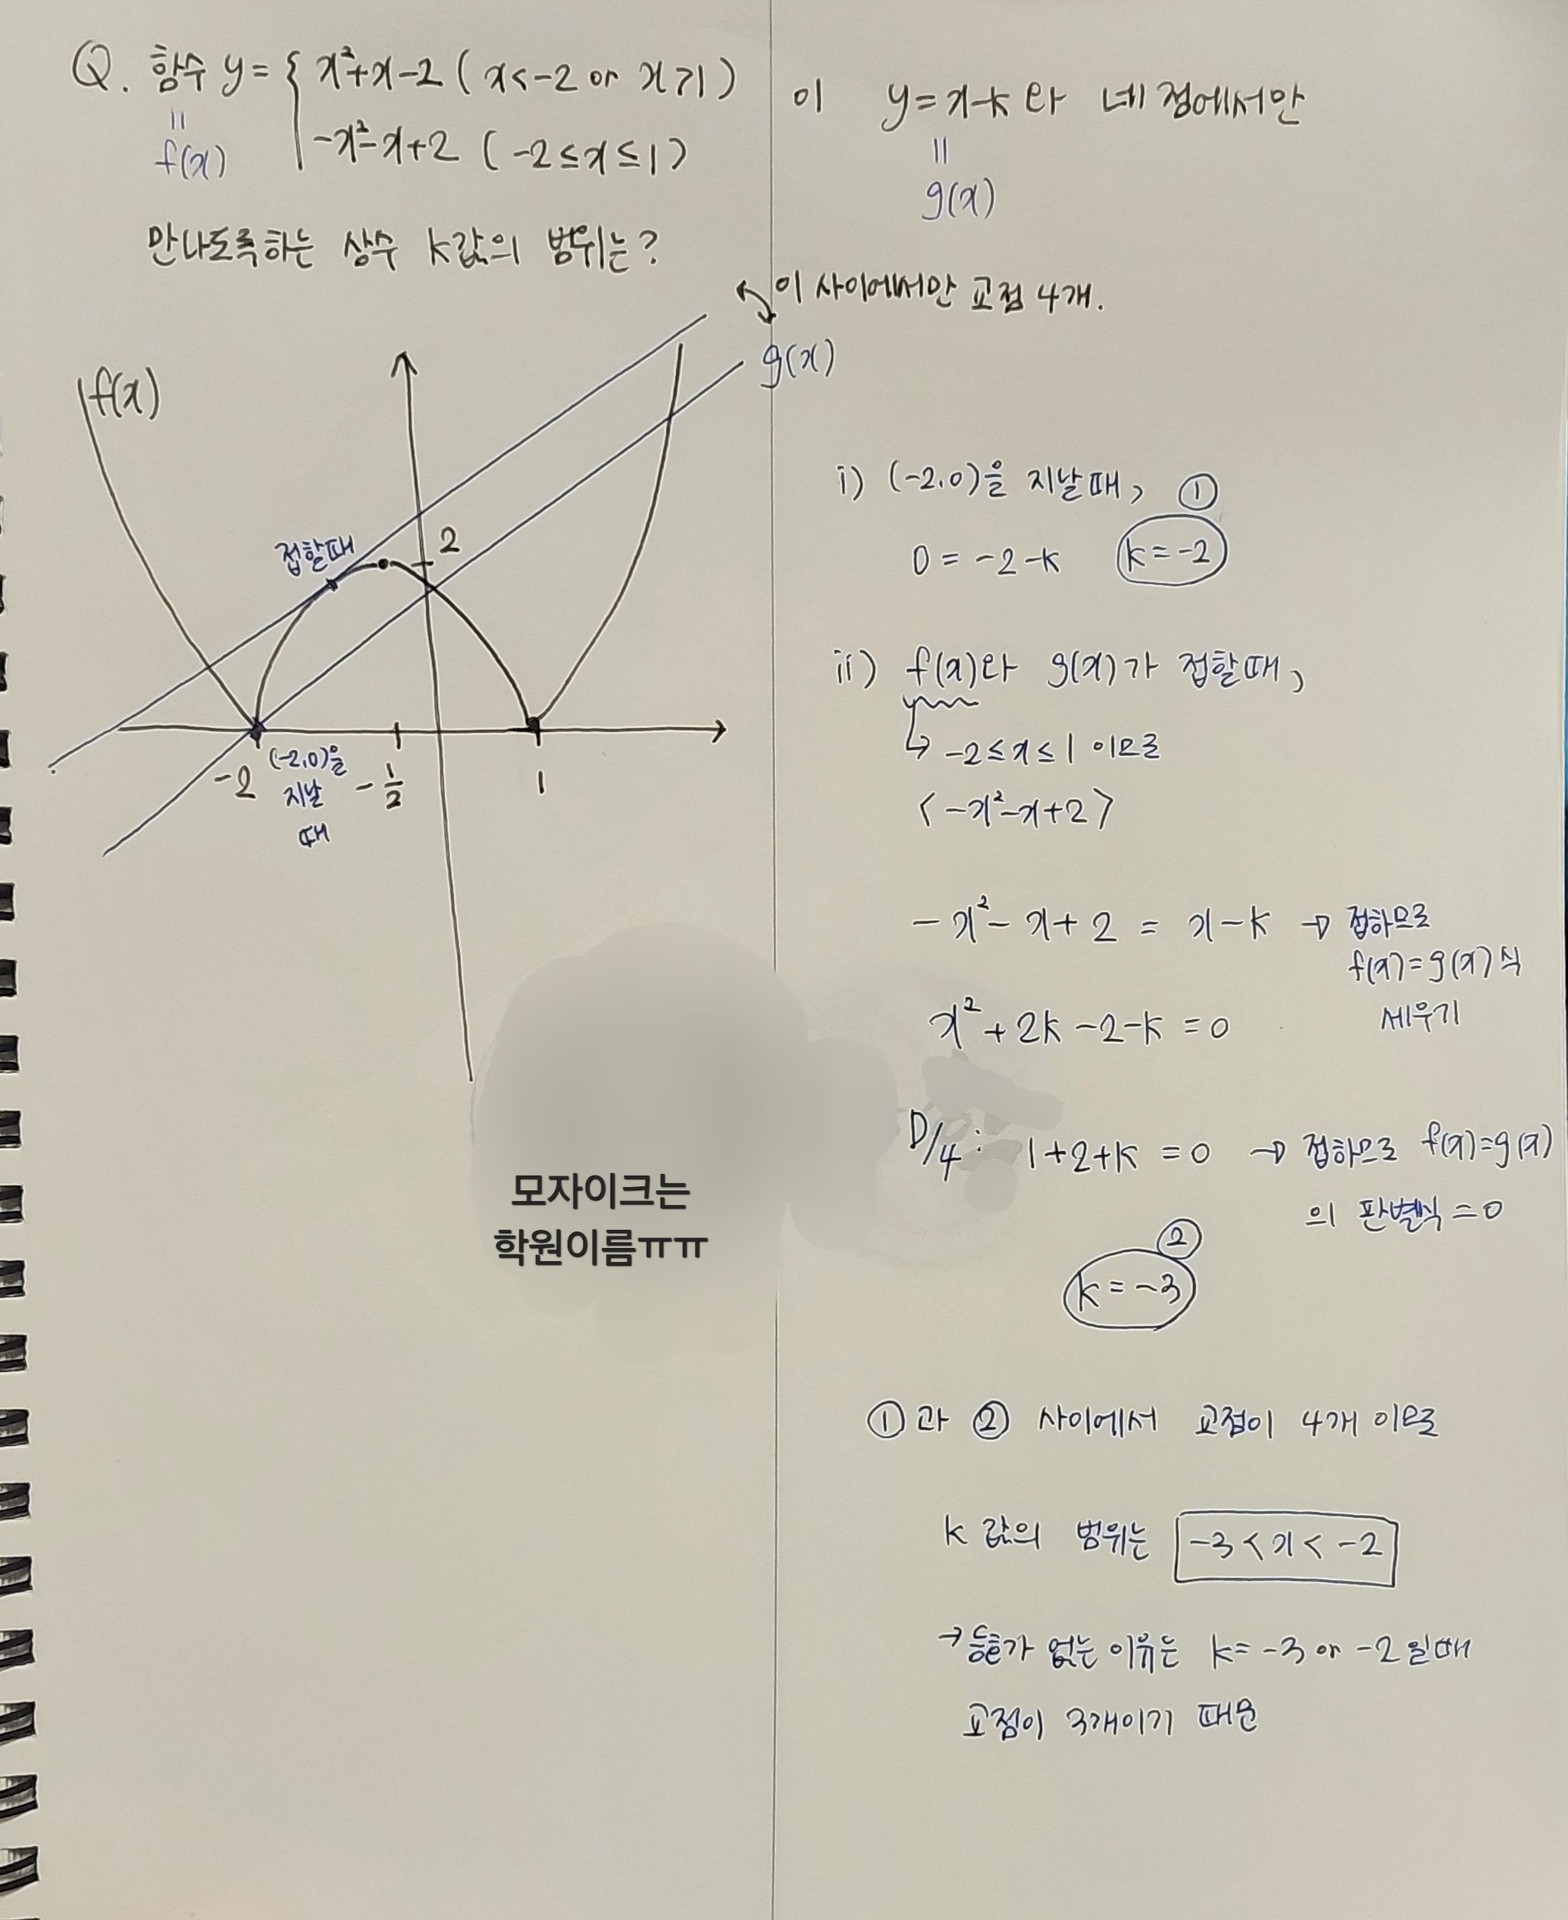 Q. 함수 y = { x²+x-2 ( x<-2 or x>1 ) 이 y=x-k 와 네 점에서만
-x²-x+2 ( -2≤x≤1 )
= f(x)
= g(x)
만나도록하는 상수 k값의 범위는?
이 사이에서만 교점 4개.
f(x)
g(x)
접할때
2
-2
(-2,0)을
지날
때
-1/2
1
모자이크는
학원이름ㅠㅠ
i) (-2,0)을 지날때, ①
0 = -2-k k=-2
ii) f(x)와 g(x)가 접할때,
↳ -2≤x≤1 이므로
< -x²-x+2 >
-x²-x+2 = x-k → 접하므로
f(x)=g(x) 식
세우기
x²+2k-2-k=0
D/4 : 1+2+k=0 → 접하므로 f(x)=g(x)
의 판별식=0
②
k=-3
①과 ② 사이에서 교점이 4개 이므로
k 값의 범위는 -3<x<-2
→ 등호가 없는 이유는 k=-3 or -2 일때
교점이 3개이기 때문